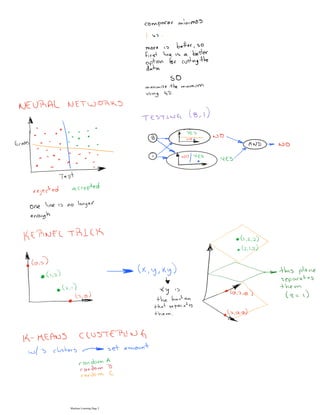 compare minimos
1 vs.
more is better, so
first line is a better
option for cutting the
data
SO
maximize the minimum
using GD
NEURAL NETWORKS
Grades
Test
rejected accepted
One line is no longer
enough
TESTING (8, 1)
8
1
YES
NO
NO
NOT YES
YES
AND
NO
KERNEL TRICK
(0,3)
(1,2)
(2,1)
(3,0)
(x, y, xy)
xy is
the function
that separates
them
(1,2,2)
(2,1,2)
(0,3,0)
(3,0,0)
this plane
separates
them
(z = 1)
K-MEANS CLUSTERING
w/ 3 clusters
set amount
random A
random B
random C
Machine Learning Page 2